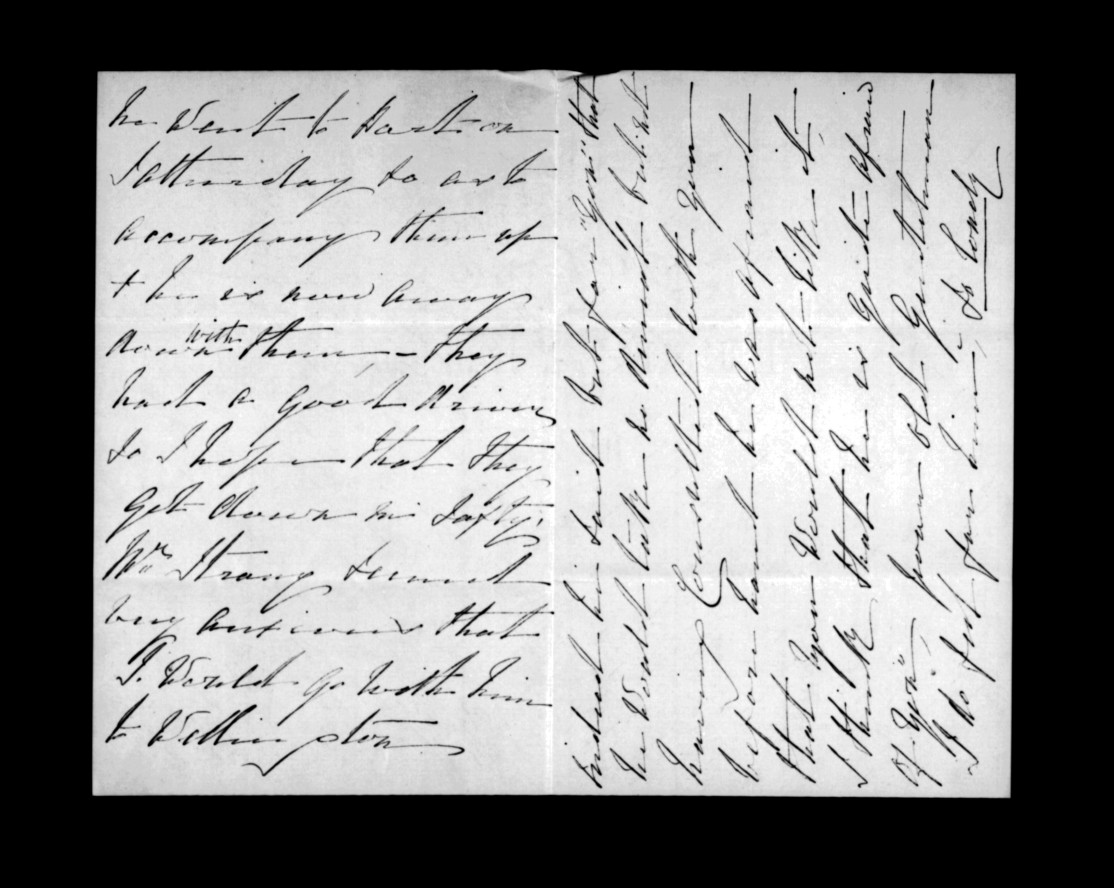 he went to Hast on
Satturday so as to
accompany them up
+ he is now away
down with them, - they
had a good driver
so I hope that they
get down in safty;
Mr Strang seemed
very anxious that
I would go with him
to Wellington
indeed he said but for "you" that
he would take no denial but not
having Consulted with you
before hand he was afraid
that you would not like it,
I think that he is quite afraid
of "you", poor old Gentleman
I do feel for him, so lonely